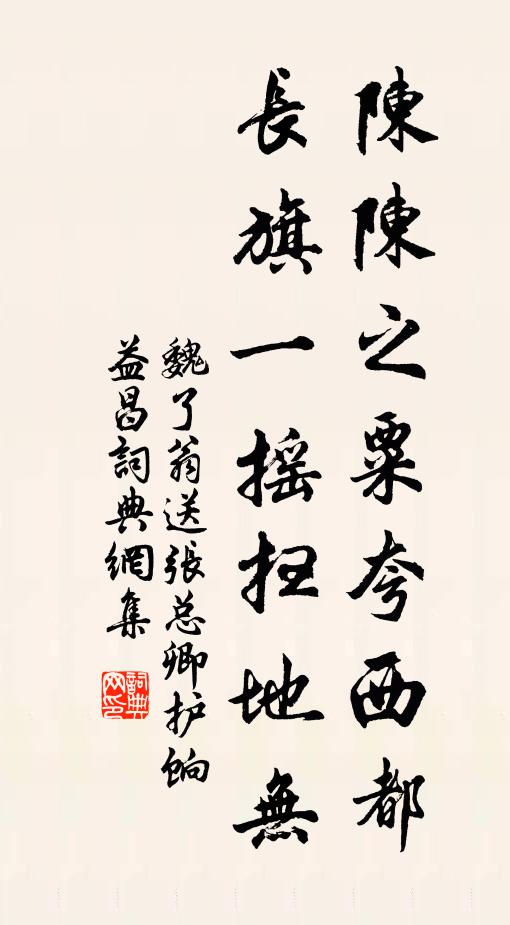 陳陳之粟夸西都
長旗一摇扫地無
魏了翁送張总卿护饷
益昌詞典網集
詞典
网印